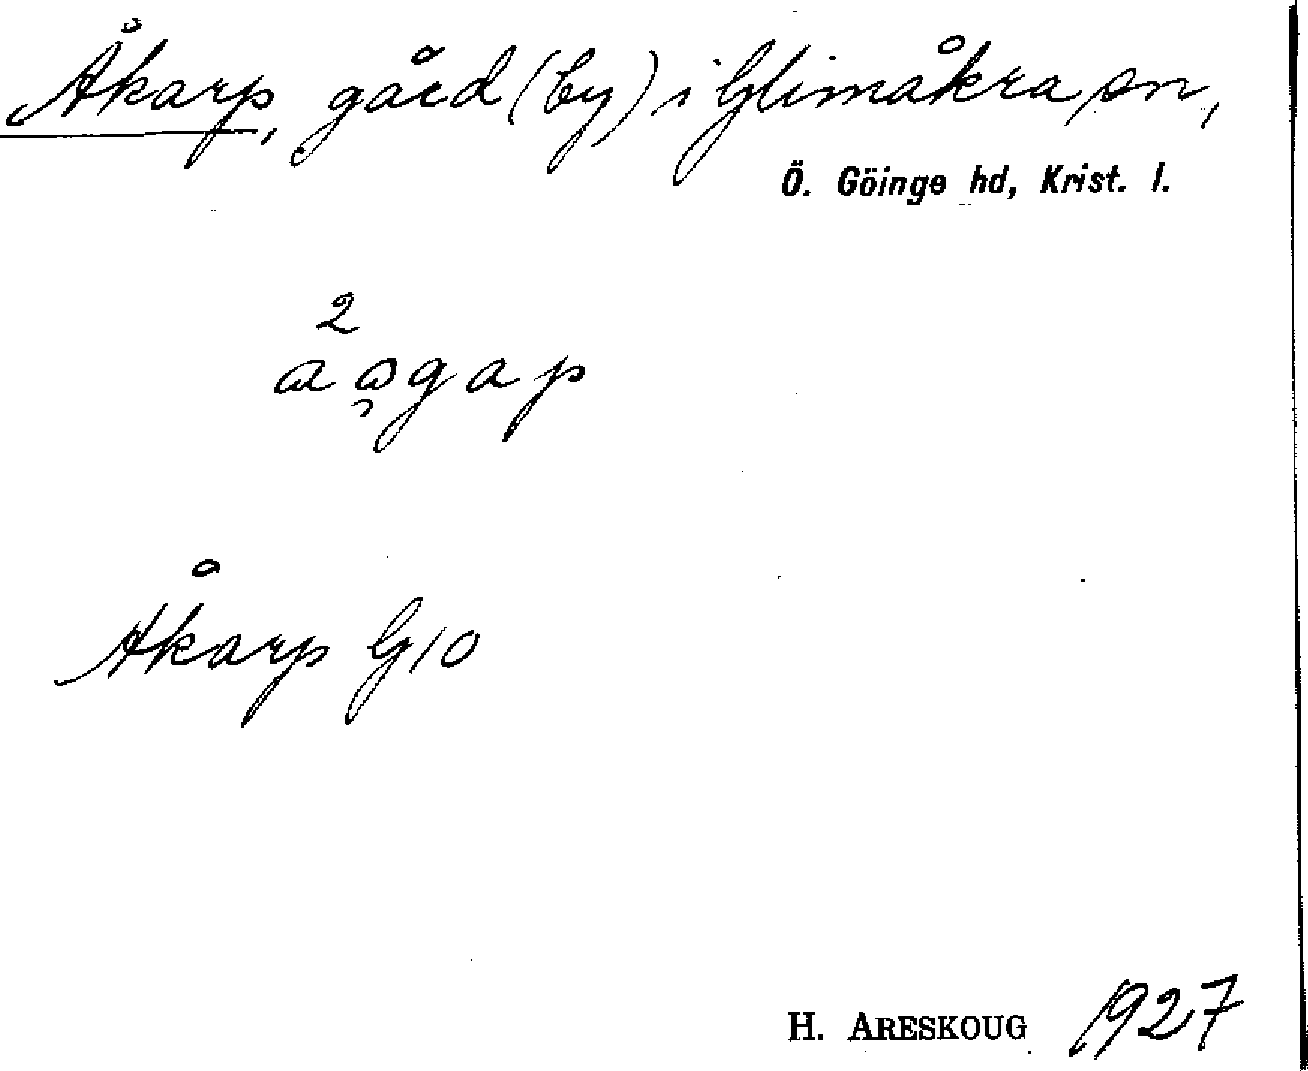 Åkarp, gård (by) i Glimåkra sn,
Ö. Göinge hd, Krist. l.
2
Åkarp G 10
H. ARESKOUG 1927